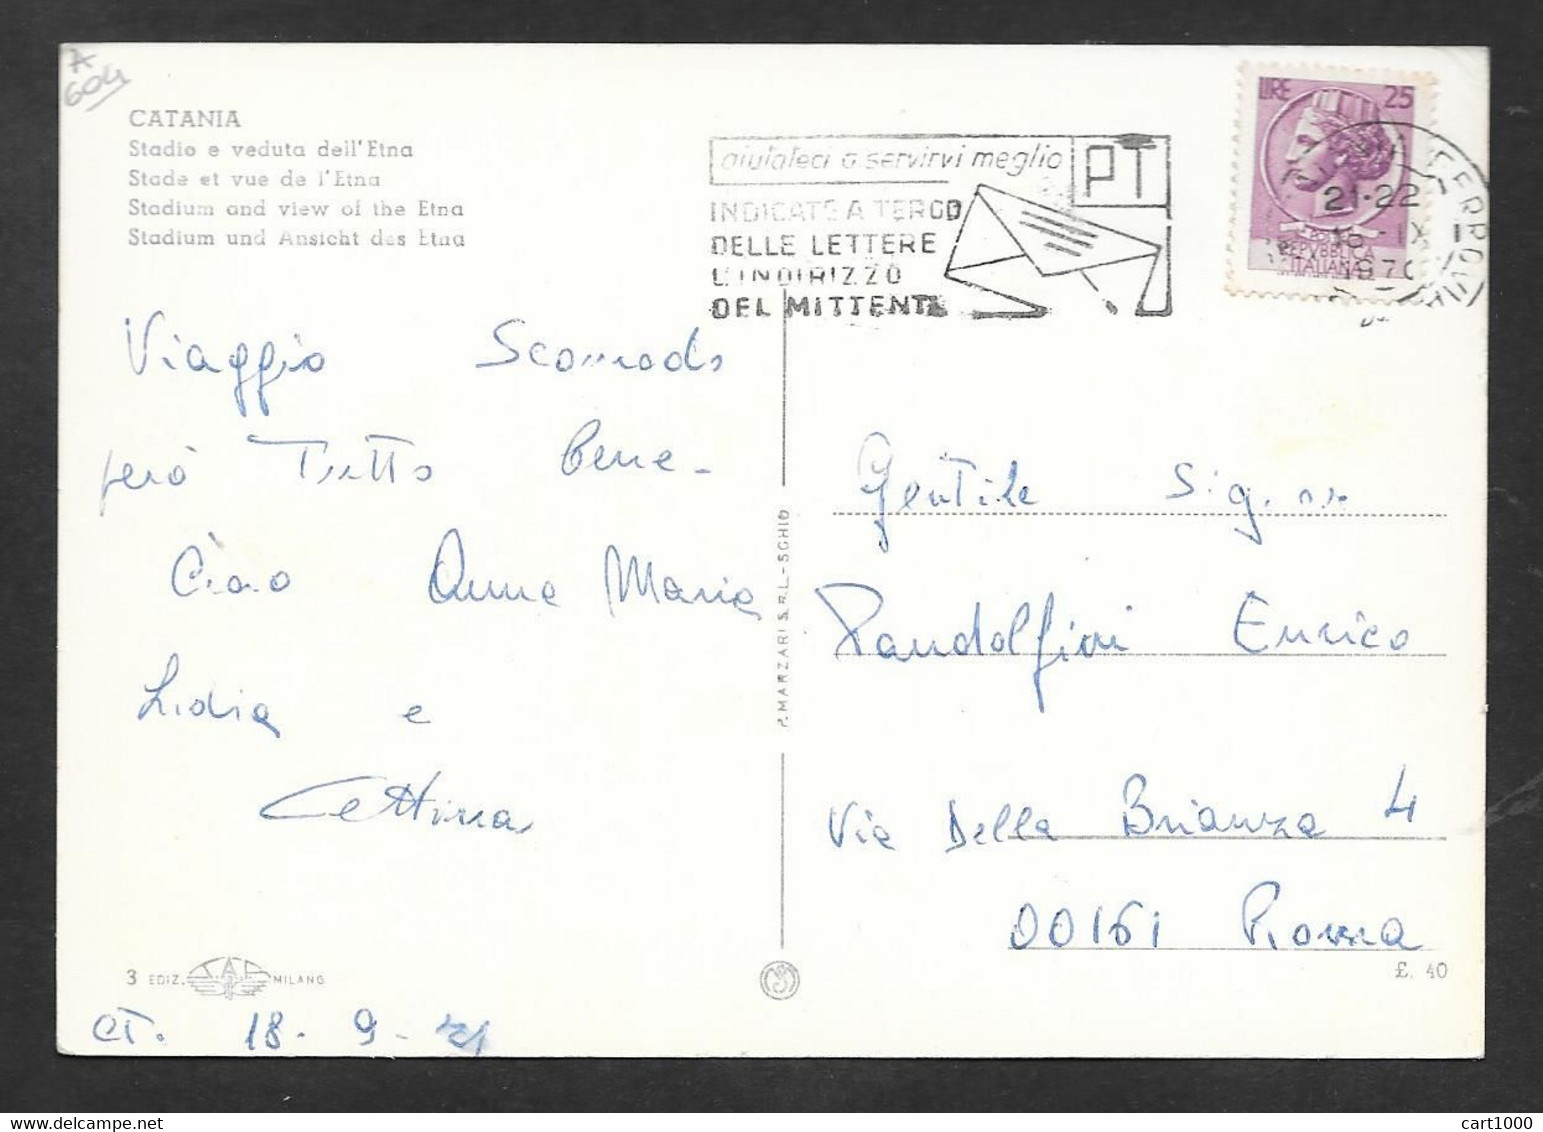 A
604
CATANIA
Stadio e veduta dell'Etna
Stade et vue de l'Etna
Stadium and view of the Etna
Stadium und Ansicht des Etna
aiutateci a servirvi meglio
PT
INDICATE A TERGO
DELLE LETTERE
L'INDIRIZZO
DEL MITTENTE
LIRE 25
REPVBBLICA
ITALIANA
21-22
IX
1970
FERROVIA
Viaggio Scomodo
però Tutto bene -
Ciao Anna Maria
Lidia e
Cettina
P. MARZARI S.R.L. - SCHIO
Gentile Sig.
Pandolfini Enrico
Via Della Brianza 4
00161 Roma
£. 40
3 EDIZ. S.A.F. MILANO
CT. 18 - 9 -
cart1000